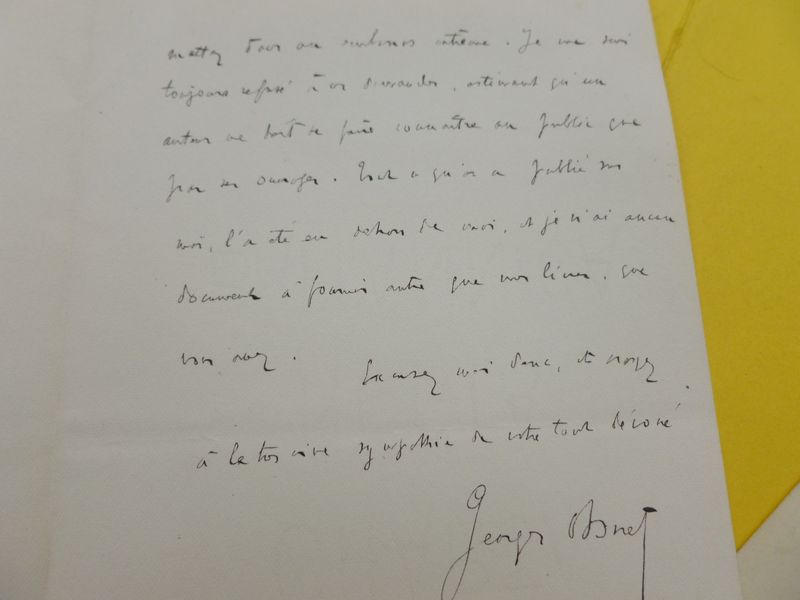 mettez dans un embarras extrême. Je me suis
toujours refusé à ces demandes, estimant qu'un
auteur ne doit se faire connaître au public que
par ses ouvrages. Tout ce qu'on a publié sur
moi, l'a été en dehors de moi, et je n'ai aucun
document à fournir autre que mes livres, que
vous avez.
Excusez moi donc, et croyez
à la très vive sympathie de votre tout dévoué
Georges